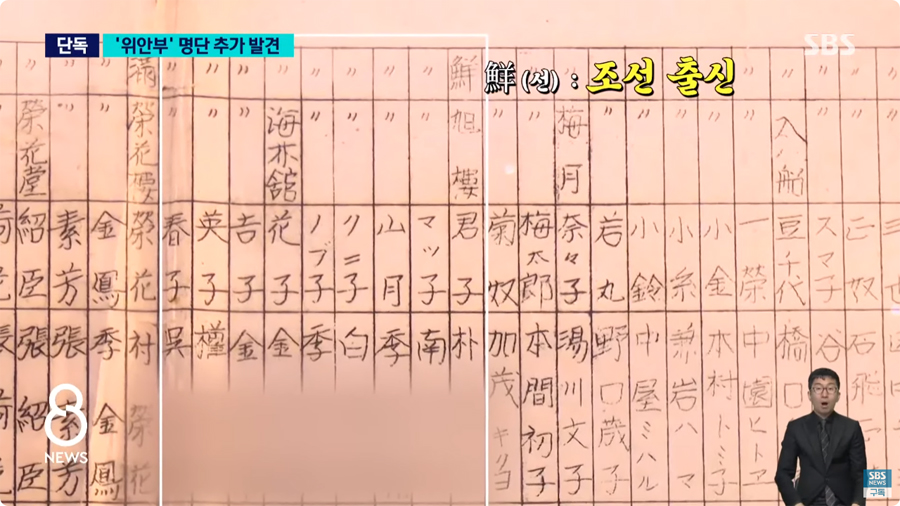 단독 '위안부' 명단 추가 발견
SBS
鮮(선) : 조선 출신
正奴 石飛
〃 スマ子 谷
〃 入船 豆千代 橋口
〃 〃 一榮 中園ヒトヱ
〃 〃 小金 本村トミ子
〃 〃 小糸 兼岩ハマ
〃 〃 小鈴 中屋ミハル
〃 〃 若丸 野口歳子
〃 梅月 奈々子 湯川文子
〃 〃 梅太郎 本間初子
〃 〃 菊奴 加茂キリヨ
鮮 旭樓 君子 朴
〃 〃 マツ子 南
〃 〃 山月 季
〃 〃 クニ子 白
〃 〃 ノブ子 季
〃 海林舘 花子 金
〃 〃 吉子 金
〃 〃 英子 權
〃 〃 春子 呉
滿 榮花樓 榮花 村榮花
〃 〃 金鳳 季金鳳
〃 〃 素芳 張素芳
〃 榮花堂 紹臣 張紹臣
8
NEWS
SBS
NEWS
구독